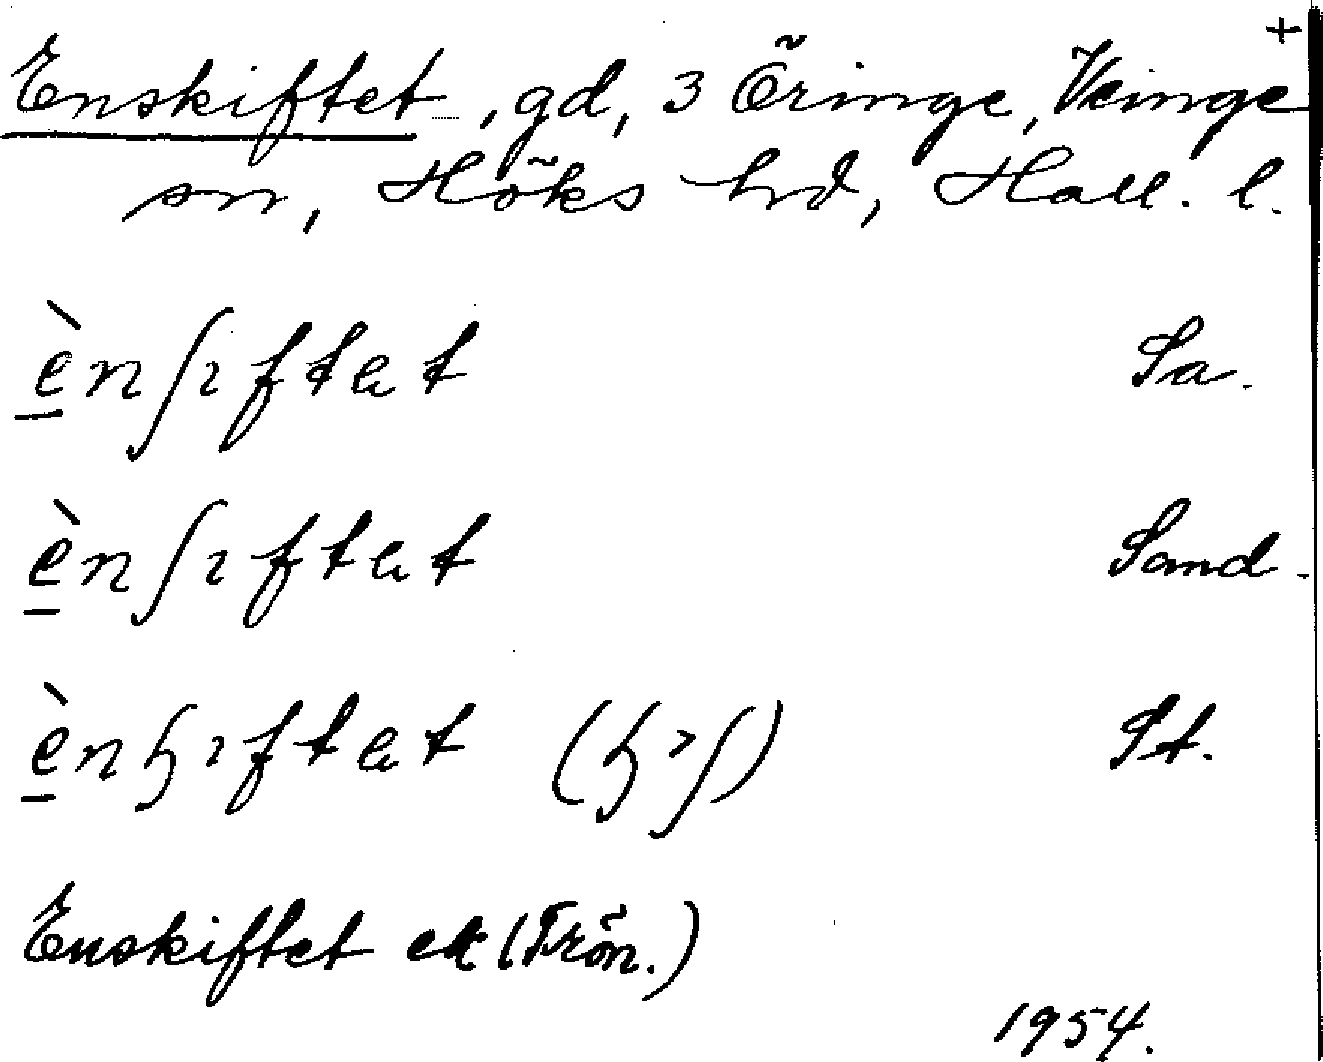 +
Enskiftet, gd, 3 Öringe, Veinge
sn, Höks hrd, Hall. l.
èn∫ıftət Sa.
èn∫ıftət Sand.
ènɧıftət (ɧ>∫) St.
Enskiftet ek (Trön.)
1954.